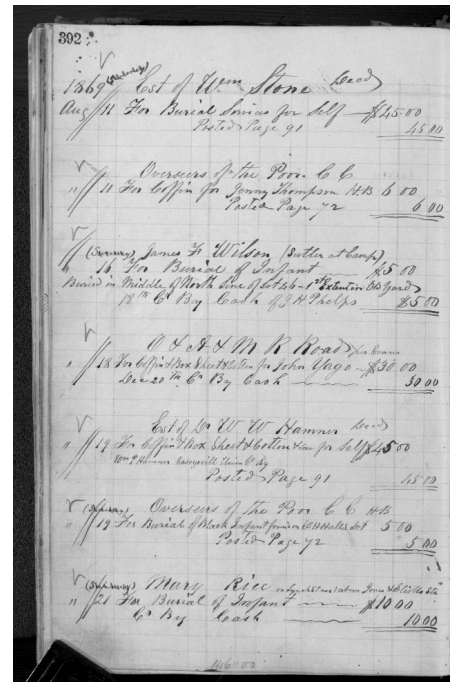 392
1869 Est of Wm Stone Decd
Aug 11 For Burial Services for Self $45.00
Posted Page 91 45 00
Overseers of the Poor C C
" 11 For Coffin for Jenny Thompson H.B 6 00
Posted Page 72 6 00
James F Wilson (Sutler at Camp)
" 16 For Burial of Infant $5 00
Buried in Middle of North Line of Lot 46 - 1st Yard
18th Cr By Cash of J H Phelps $5 00
O & A & M R Road
" 18 For Coffin & Box Sheet & Cotton for John Yago $30 00
Dec 20th Cr By Cash 30 00
Est of Dr W W Hamner Decd
" 19 For Coffin & Box Sheet & Cotton for Self $45 00
Hamner Union Co Ky
Posted Page 91 45 00
Overseers of the Poor C C H B
" 19 For Burial of Black Infant found in Lot 5 00
Posted Page 72 5 00
Mary Rice above
" 21 For Burial of Infant $10 00
Cr By Cash 10 00
146 00